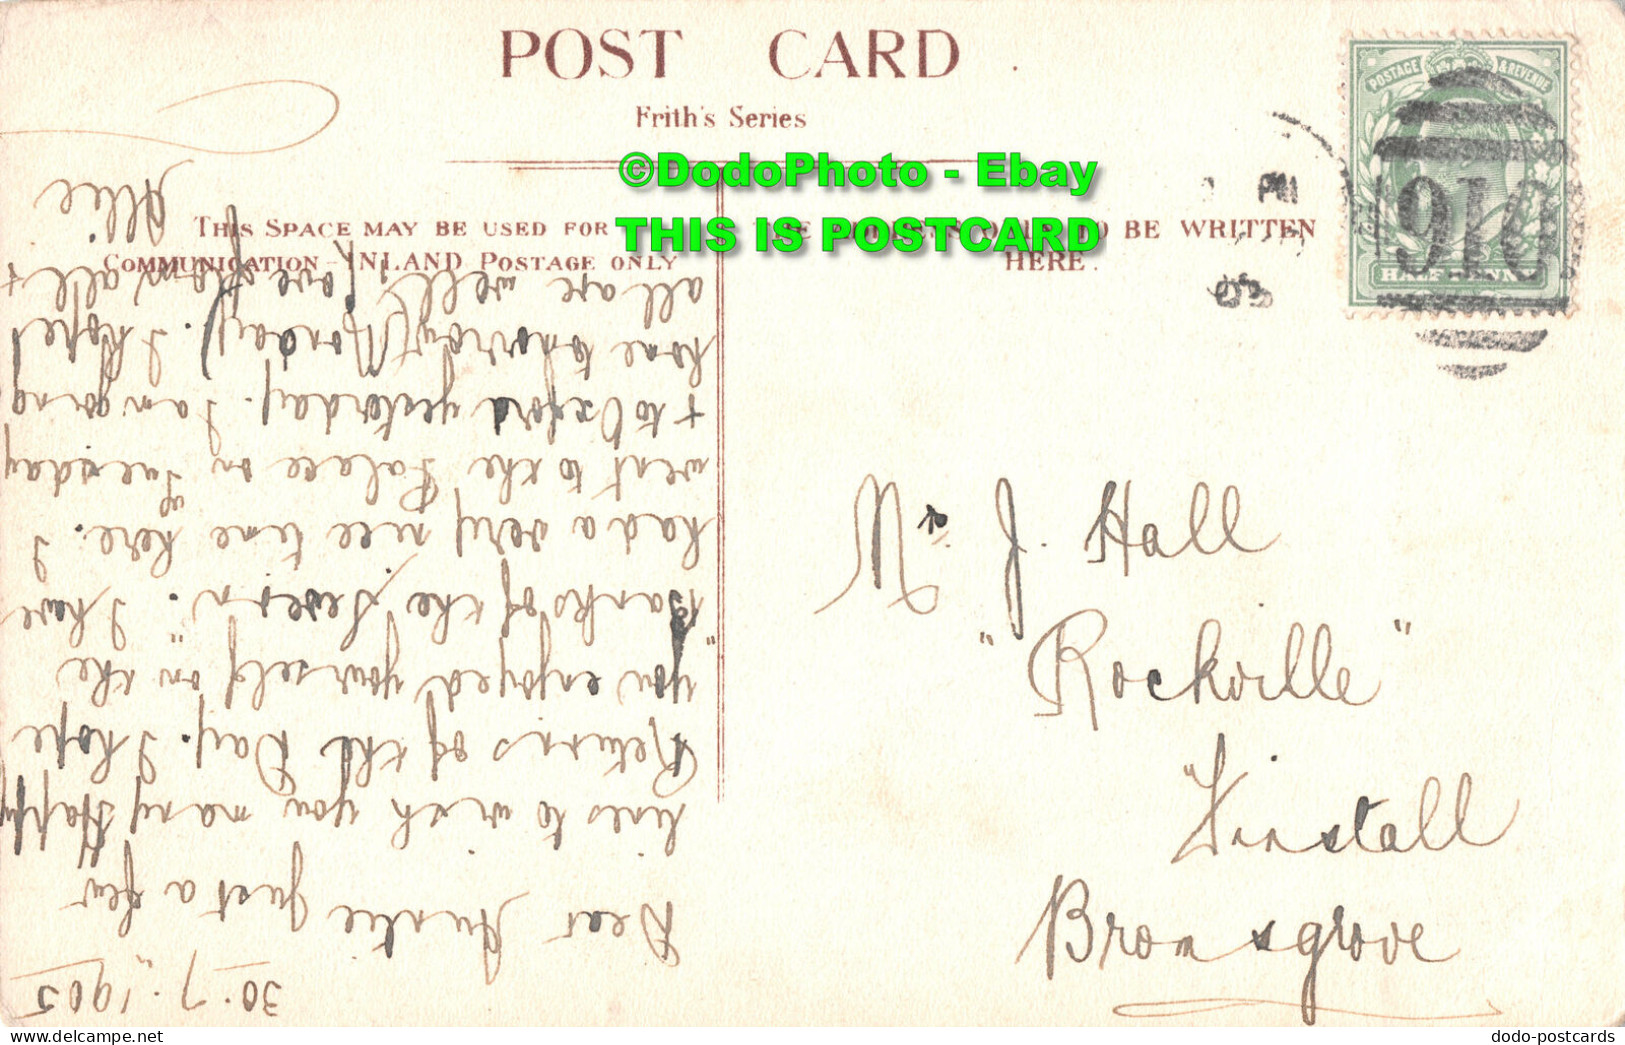 POST CARD
Frith's Series
THIS SPACE MAY BE USED FOR
COMMUNICATION - INLAND POSTAGE ONLY
TO BE WRITTEN
HERE.
©DodoPhoto - Ebay
THIS IS POSTCARD
POSTAGE & REVENUE
HALFPENNY
910
PM
05
Mrs J. Hall
"Rockville"
Finstall
Bromsgrove
30.7.1905
Dear Auntie Just a few
lines to wish you many Happy
Returns of the Day. I hope
you enjoyed yourself on the
"Banks of the Severn". I have
had a very nice time here. I
went to the Palace on Tuesday
& to Oxford yesterday. I am going
home tomorrow (Monday). I hope
all are well. Love from all &
Allie
dodo-postcards